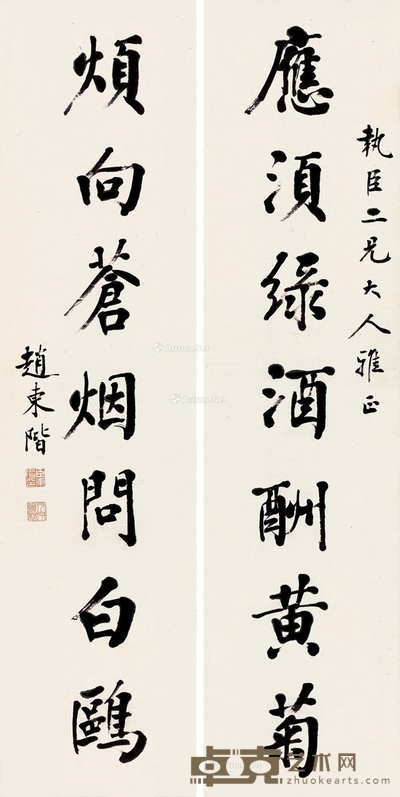 執臣二兄大人雅正
應須綠酒酬黄菊
煩向蒼烟問白鷗
趙東階
Artron.Net
Artron.Net
卓克艺术网
zhuokearts.com